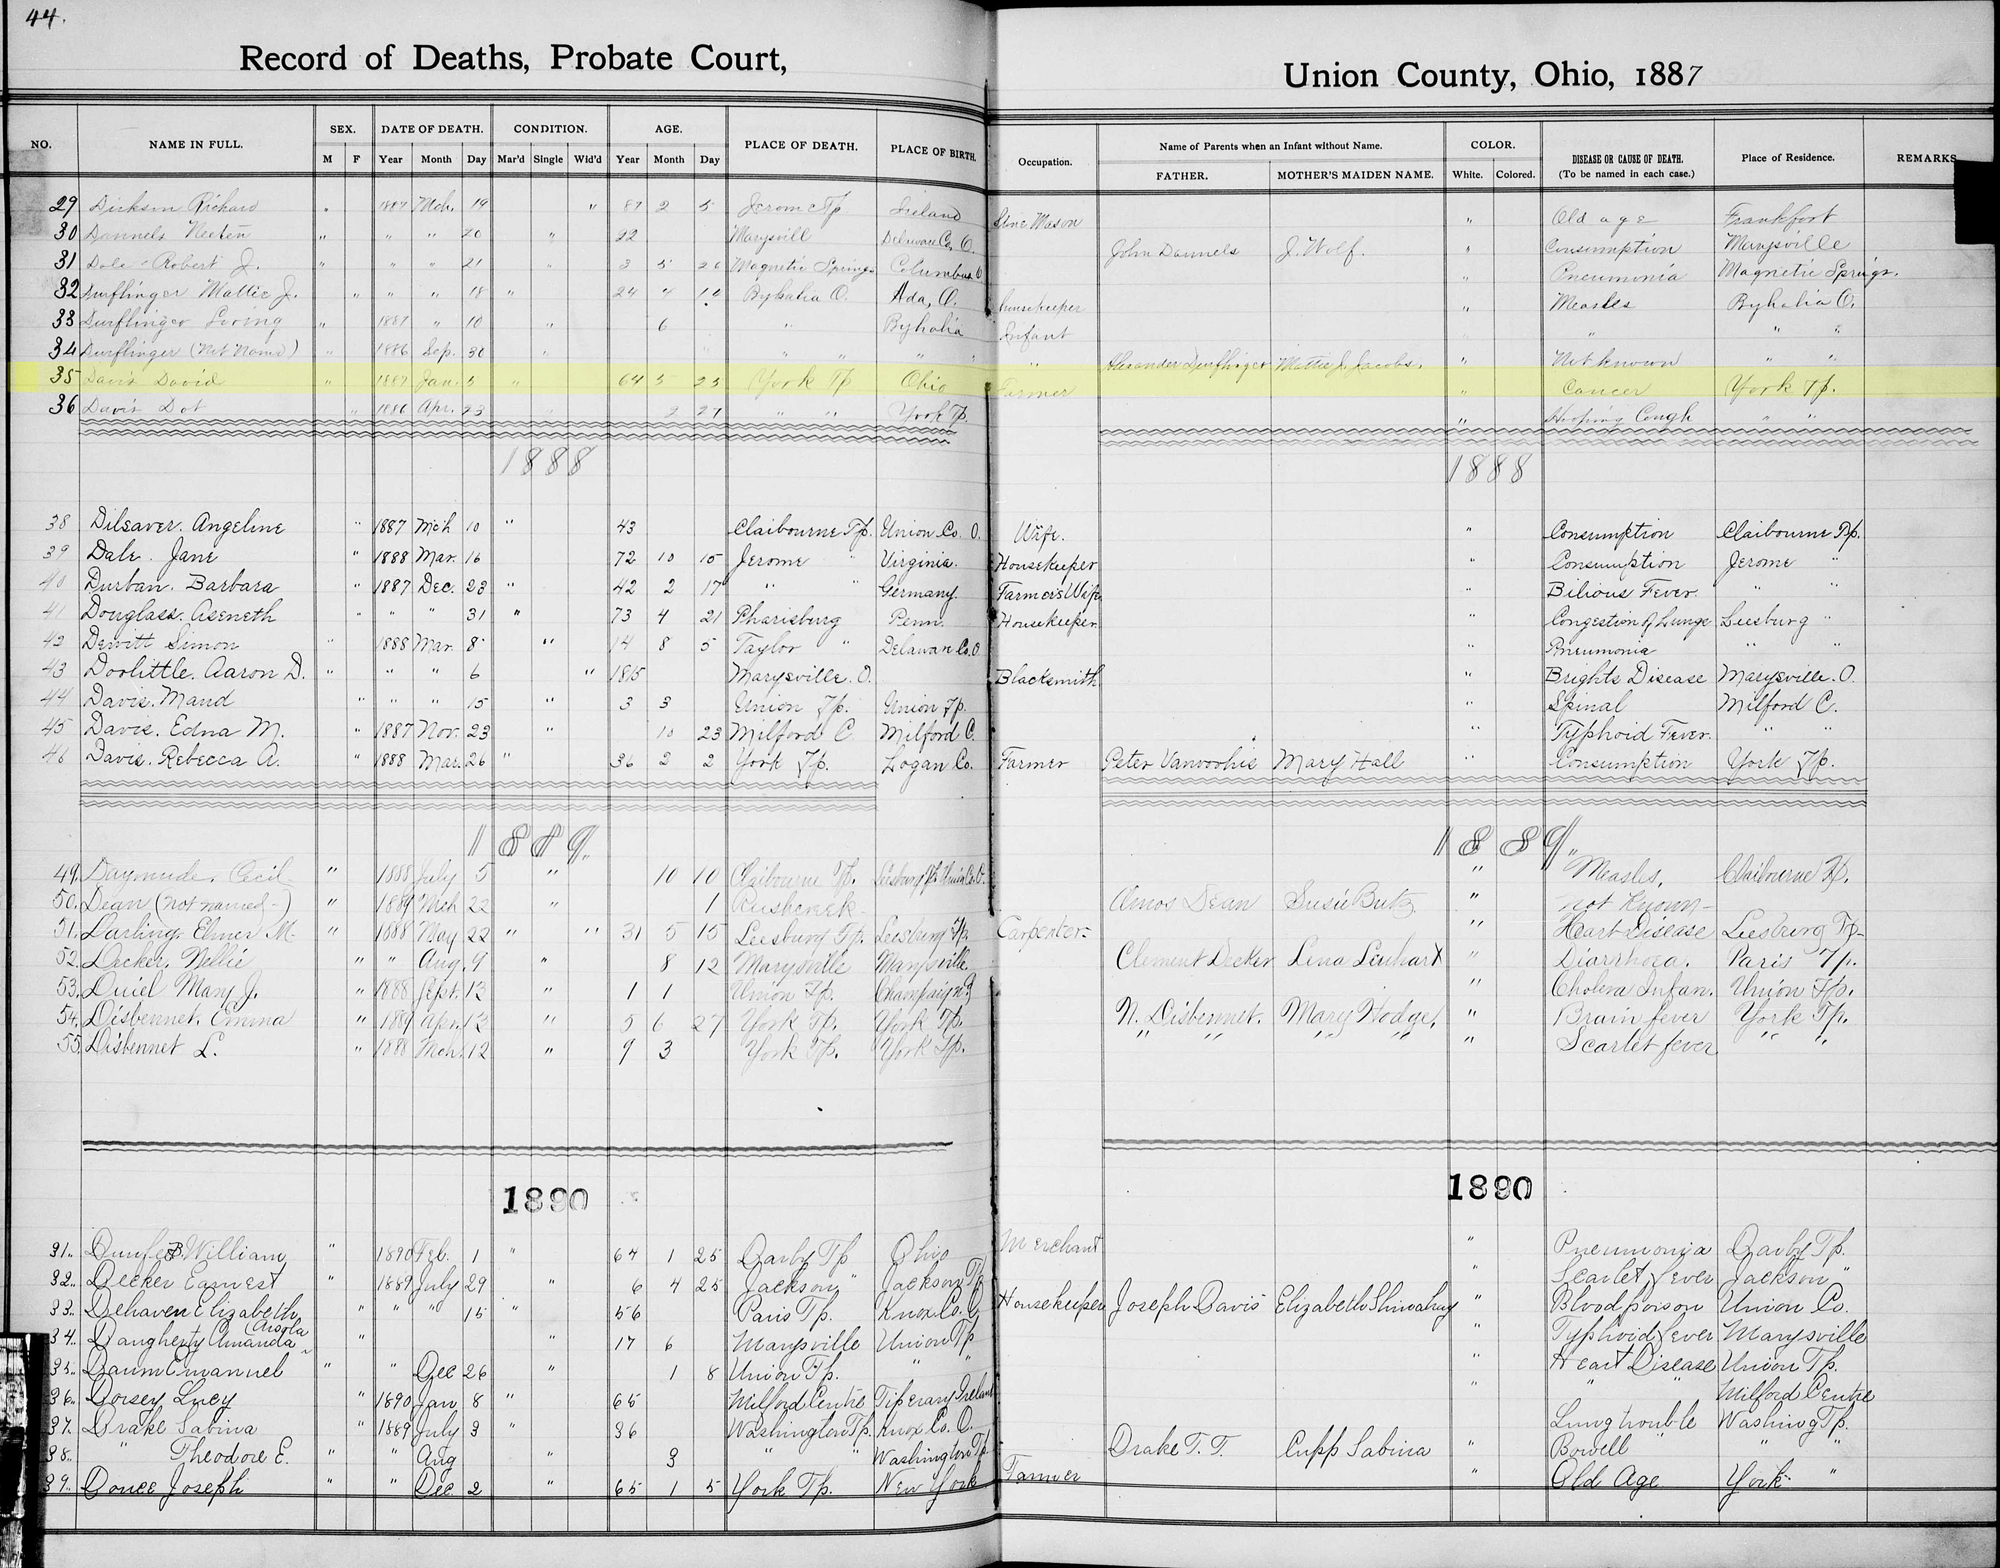 44.
Record of Deaths, Probate Court, Union County, Ohio, 1887
NO. NAME IN FULL. SEX. M F DATE OF DEATH. Year Month Day CONDITION. Mar'd Single Wid'd AGE. Year Month Day PLACE OF DEATH. PLACE OF BIRTH. Occupation. Name of Parents when an Infant without Name. FATHER. MOTHER'S MAIDEN NAME. COLOR. White. Colored. DISEASE OR CAUSE OF DEATH. (To be named in each case.) Place of Residence. REMARKS
29 Dickson Richard " 1887 Mch. 19 " 87 2 5 Jerome Tp Ireland Stone Mason " Old age Frankfort
30 Dannels " " " 20 " 22 Marysvill Delaware Co, O. John Dannels J. Wolf. " Consumption Marysville
31 Dole Robert J. " " " 21 " 3 5 26 Magnetic Springs Columbus O " Pneumonia Magnetic Springs.
32 Durflinger Mattie J. " " " 18 " 24 4 10 Byhalia O. Ada, O. housekeeper " Measles Byhalia O.
33 Durflinger Loring " 1887 " 10 " 6 " Byhalia Infant " " " "
34 Durflinger (Not Named) " 1886 Sep. 30 " " " " " " Alexander Durflinger Mattie J. Jacobs. " Not known " "
35 Davis David " 1887 Jan. 5 " 64 5 23 York Tp Ohio Farmer " Cancer York Tp.
36 Davis Dot " 1886 Apr. 23 " 2 27 " " York Tp. " Hooping Cough " "
1888 1888
38 Dilsaver. Angeline " 1887 Mch 10 " 43 Claibourne Tp. Union Co. O. Wife. " Consumption Claibourne Tp.
39 Dale. Jane " 1888 Mar. 16 72 10 15 Jerome " Virginia. Housekeeper " Consumption Jerome "
40 Durban. Barbara " 1887 Dec. 23 " 42 2 17 " " Germany. Farmer's Wife " Bilious Fever. " "
41 Douglass. Aseneth " " " 31 " 73 4 21 Pharisburg Penn. Housekeeper. " Congestion of Lungs Leesburg "
42 Dewitt Simon " 1888 Mar. 8 " 14 8 5 Taylor " Delawan Co. O " Pneumonia " "
43 Doolittle. Aaron D. " " " 6 " 1815 Marysville. O. Blacksmith " Brights Disease Marysville. O.
44 Davis. Maud " " " 15 " 3 3 Union Tp. Union Tp. " Spinal Milford C.
45 Davis. Edna M. " 1887 Nov. 23 " 10 23 Milford C Milford C. " Typhoid Fever. " "
46 Davis. Rebecca A. " 1888 Mar. 26 " 36 2 2 York Tp. Logan Co. Farmer Peter Vanvoorhis Mary Hall " Consumption York Tp.
1889. 1889.
49. Daymude. Cecil " 1888 July 5 " 10 10 Claibourne Tp. Leesburg Tp. Union Co. O. " Measles, Claibourne Tp.
50. Dean (not named-) 1889 Mch 22 " 1 Rushcreek Amos Dean Susie Butz " not known-
51. Darling. Elmer M. " 1888 May 22 " " 31 5 15 Leesburg Tp. Leesburg Tp. Carpenter- " Heart Disease Leesburg Tp-
52. Decker, Nellie " " Aug. 9 " 8 12 Marysville Marysville Clement Decker Lena Linhart " Diarrhoea. Paris Tp.
53. Duiel Mary J. " 1888 Sept. 13 " 1 1 Union Tp. " Cholera Infan. Union Tp.
54. Disbennet. Emma " 1889 Apr. 12 " 5 6 27 York Tp. York Tp. N. Disbennet. Mary Hodge, " Brain fever York Tp.
55 Disbennet L. " 1888 Mch. 12 " 9 3 York Tp. York Tp. " " " " " Scarlet fever " "
1890 1890
31.. William " 1890 Feb. 1 " 64 1 25 Darby Tp Ohio Merchant " Pneumonia Darby Tp.
32.. Decker Earnest " 1889 July 29 " 6 4 25 Jackson " Jackson Tp " Scarlet fever Jackson "
33.. Dehaven Elizabeth " " " 15 " 56 Paris Tp. Knox Co. O Housekeeper Joseph Davis Elizabeth " Blood poison Union Co.
34.. Daugherty Amanda " 17 6 Marysville Union Tp " Typhoid fever Marysville
35.. Daum Emanuel " " Dec 26 " 1 8 Union Tp. " " " Heart Disease Union Tp.
36.. Dorsey Lucy " 1890 Jan 8 " 65 Milford Centre Tiperary Ireland " " " Milford Centre
37.. Drake Sabina " 1889 July 3 " 36 Washington Tp. Knox Co. O. Lung trouble Washing Tp.
38.. " Theodore E. " " Aug " 3 " " Washington Tp Drake T. T. Cupp Sabina " Bowell " " "
39.. Donce Joseph " " Dec. 2 " 65 1 5 York Tp. New York Farmer " Old Age York "